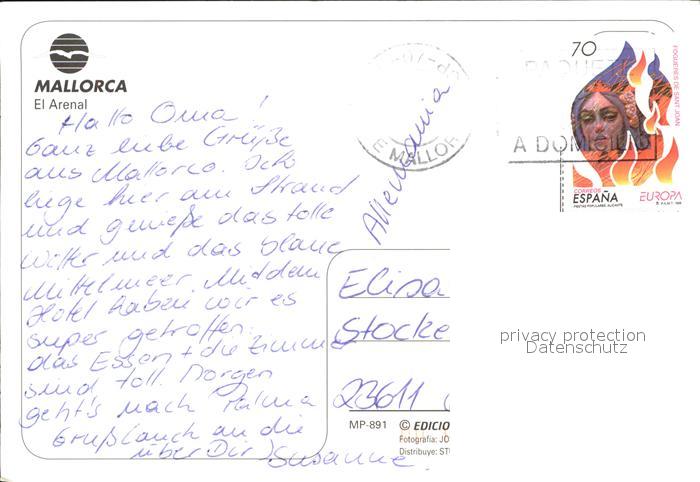 MALLORCA
El Arenal
Hallo Oma!
Ganz liebe Grüße
aus Mallorca. Ich
liege hier am Strand
und genieße das tolle
Wetter und das blaue
Mittelmeer. Mit dem
Hotel haben wir es
super getroffen.
das Essen + die Zimmer
sind toll. Morgen
geht's nach Palma
Gruß auch an die
über Dir! Susanne.
Allemania
Elisa
Stocke
23611
MP-891 © EDICIO
Fotografía: JO
Distribuye: ST
MALLOR
PAQUETE
A DOMICILIO
70
FOGUERES DE SANT JOAN
CORREOS
ESPAÑA
EUROPA
FIESTAS POPULARES. ALICANTE
privacy protection
Datenschutz